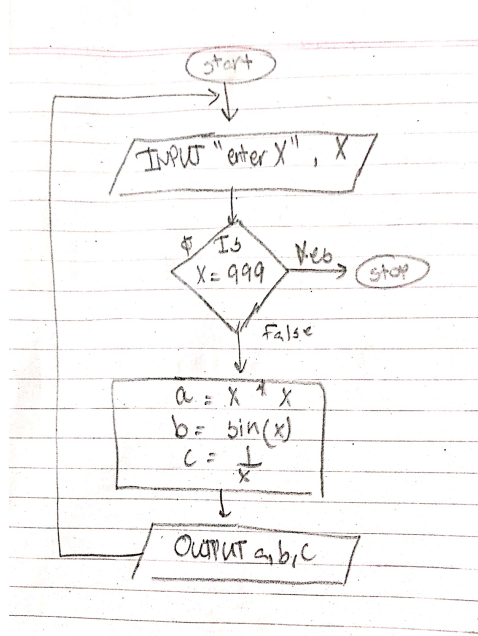 start
INPUT "enter X", X
Is
X = 999
Yes
stop
False
a = X * X
b = sin(x)
c = 1/x
OUTPUT a, b, c